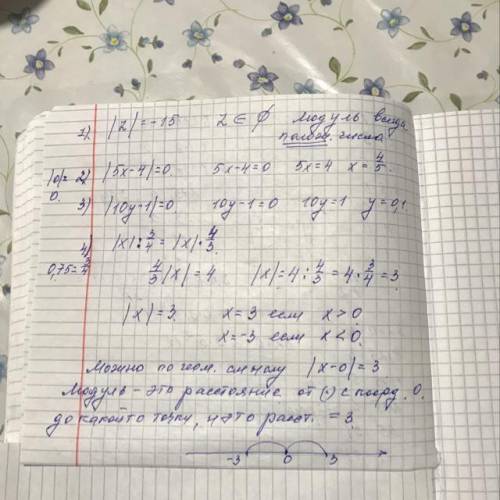 1). |z| = -15 z ∈ ∅ Модуль всегда
полож. число
|0|= 2) |5x-4|=0 5x-4=0 5x=4 x=4/5.
0. 3) |10y-1|=0. 10y-1=0 10y=1 y=0,1.
4) |x|:3/4 = |x|·4/3.
0,75=3/4 4/3|x|=4 |x|=4:4/3=4·3/4=3
|x|=3. x=3 если x>0.
x=-3 если x<0.
Можно по геом. смыслу |x-0|=3
Модуль - это расстояние от (·) с коорд. 0.
до какой то точки, и это расст. = 3.
-3 0 3